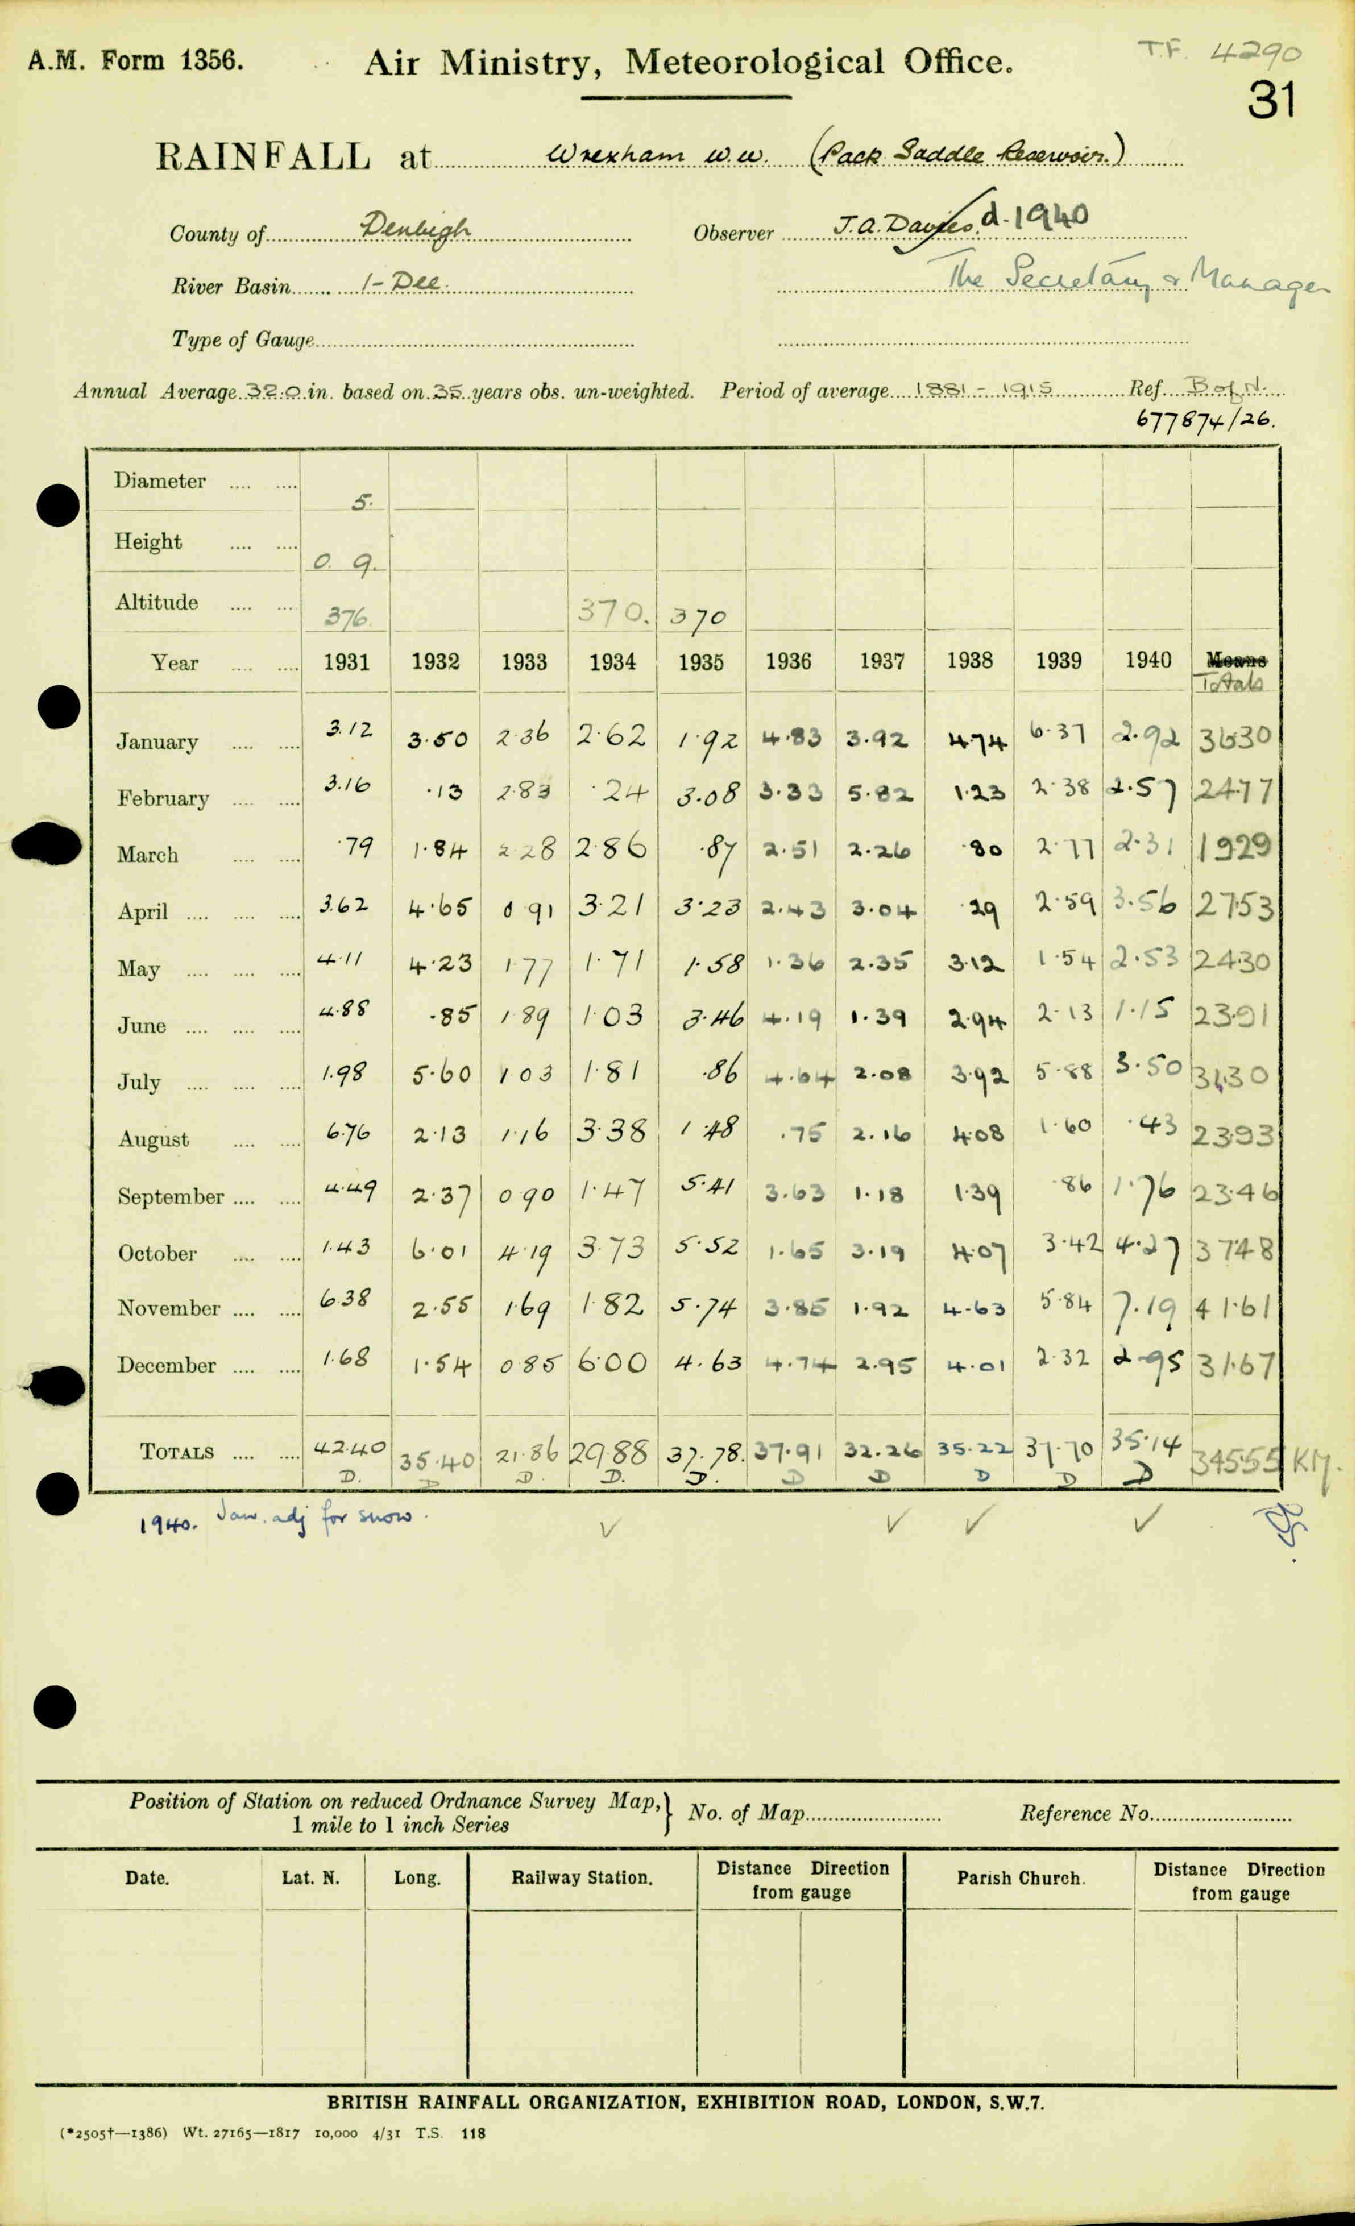 A.M. Form 1356. Air Ministry, Meteorological Office. T.F. 4290
31
RAINFALL at Wrexham W.W. (Pack Saddle Reservoir.)
County of Denbigh Observer J.A. Davies. d. 1940
River Basin 1 - Dee. The Secretary & Manager
Type of Gauge
Annual Average 32.0 in. based on 35 years obs. un-weighted. Period of average 1881 - 1915 Ref. B of N.
677874/26.
Diameter 5.
Height 0. 9.
Altitude 376. 370. 370
Year 1931 1932 1933 1934 1935 1936 1937 1938 1939 1940 Means
Totals
January 3.12 3.50 2.36 2.62 1.92 4.83 3.92 4.74 6.37 2.92 36.30
February 3.16 .13 2.83 .24 3.08 3.33 5.82 1.23 2.38 2.57 24.77
March .79 1.84 2.28 2.86 .87 2.51 2.26 .80 2.77 2.31 19.29
April 3.62 4.65 0.91 3.21 3.23 2.43 3.04 .29 2.59 3.56 27.53
May 4.11 4.23 1.77 1.71 1.58 1.36 2.35 3.12 1.54 2.53 24.30
June 4.88 .85 1.89 1.03 3.46 4.19 1.39 2.94 2.13 1.15 23.91
July 1.98 5.60 1.03 1.81 .86 4.64 2.08 3.92 5.88 3.50 31.30
August 6.76 2.13 1.16 3.38 1.48 .75 2.16 4.08 1.60 .43 23.93
September 4.49 2.37 0.90 1.47 5.41 3.63 1.18 1.39 .86 1.76 23.46
October 1.43 6.01 4.19 3.73 5.52 1.65 3.19 4.07 3.42 4.27 37.48
November 6.38 2.55 1.69 1.82 5.74 3.85 1.92 4.63 5.84 7.19 41.61
December 1.68 1.54 0.85 6.00 4.63 4.74 2.95 4.01 2.32 2.95 31.67
TOTALS 42.40 35.40 21.86 29.88 37.78. 37.91 32.26 35.22 37.70 35.14 345.55 KM.
D. D D. D. D. D D D D D
1940. Jan. adj for snow.
Position of Station on reduced Ordnance Survey Map, 1 mile to 1 inch Series } No. of Map Reference No.
Date. Lat. N. Long. Railway Station. Distance Direction from gauge Parish Church. Distance Direction from gauge
BRITISH RAINFALL ORGANIZATION, EXHIBITION ROAD, LONDON, S.W.7.
(*2505†—1386) Wt. 27165—1817 10,000 4/31 T.S. 118